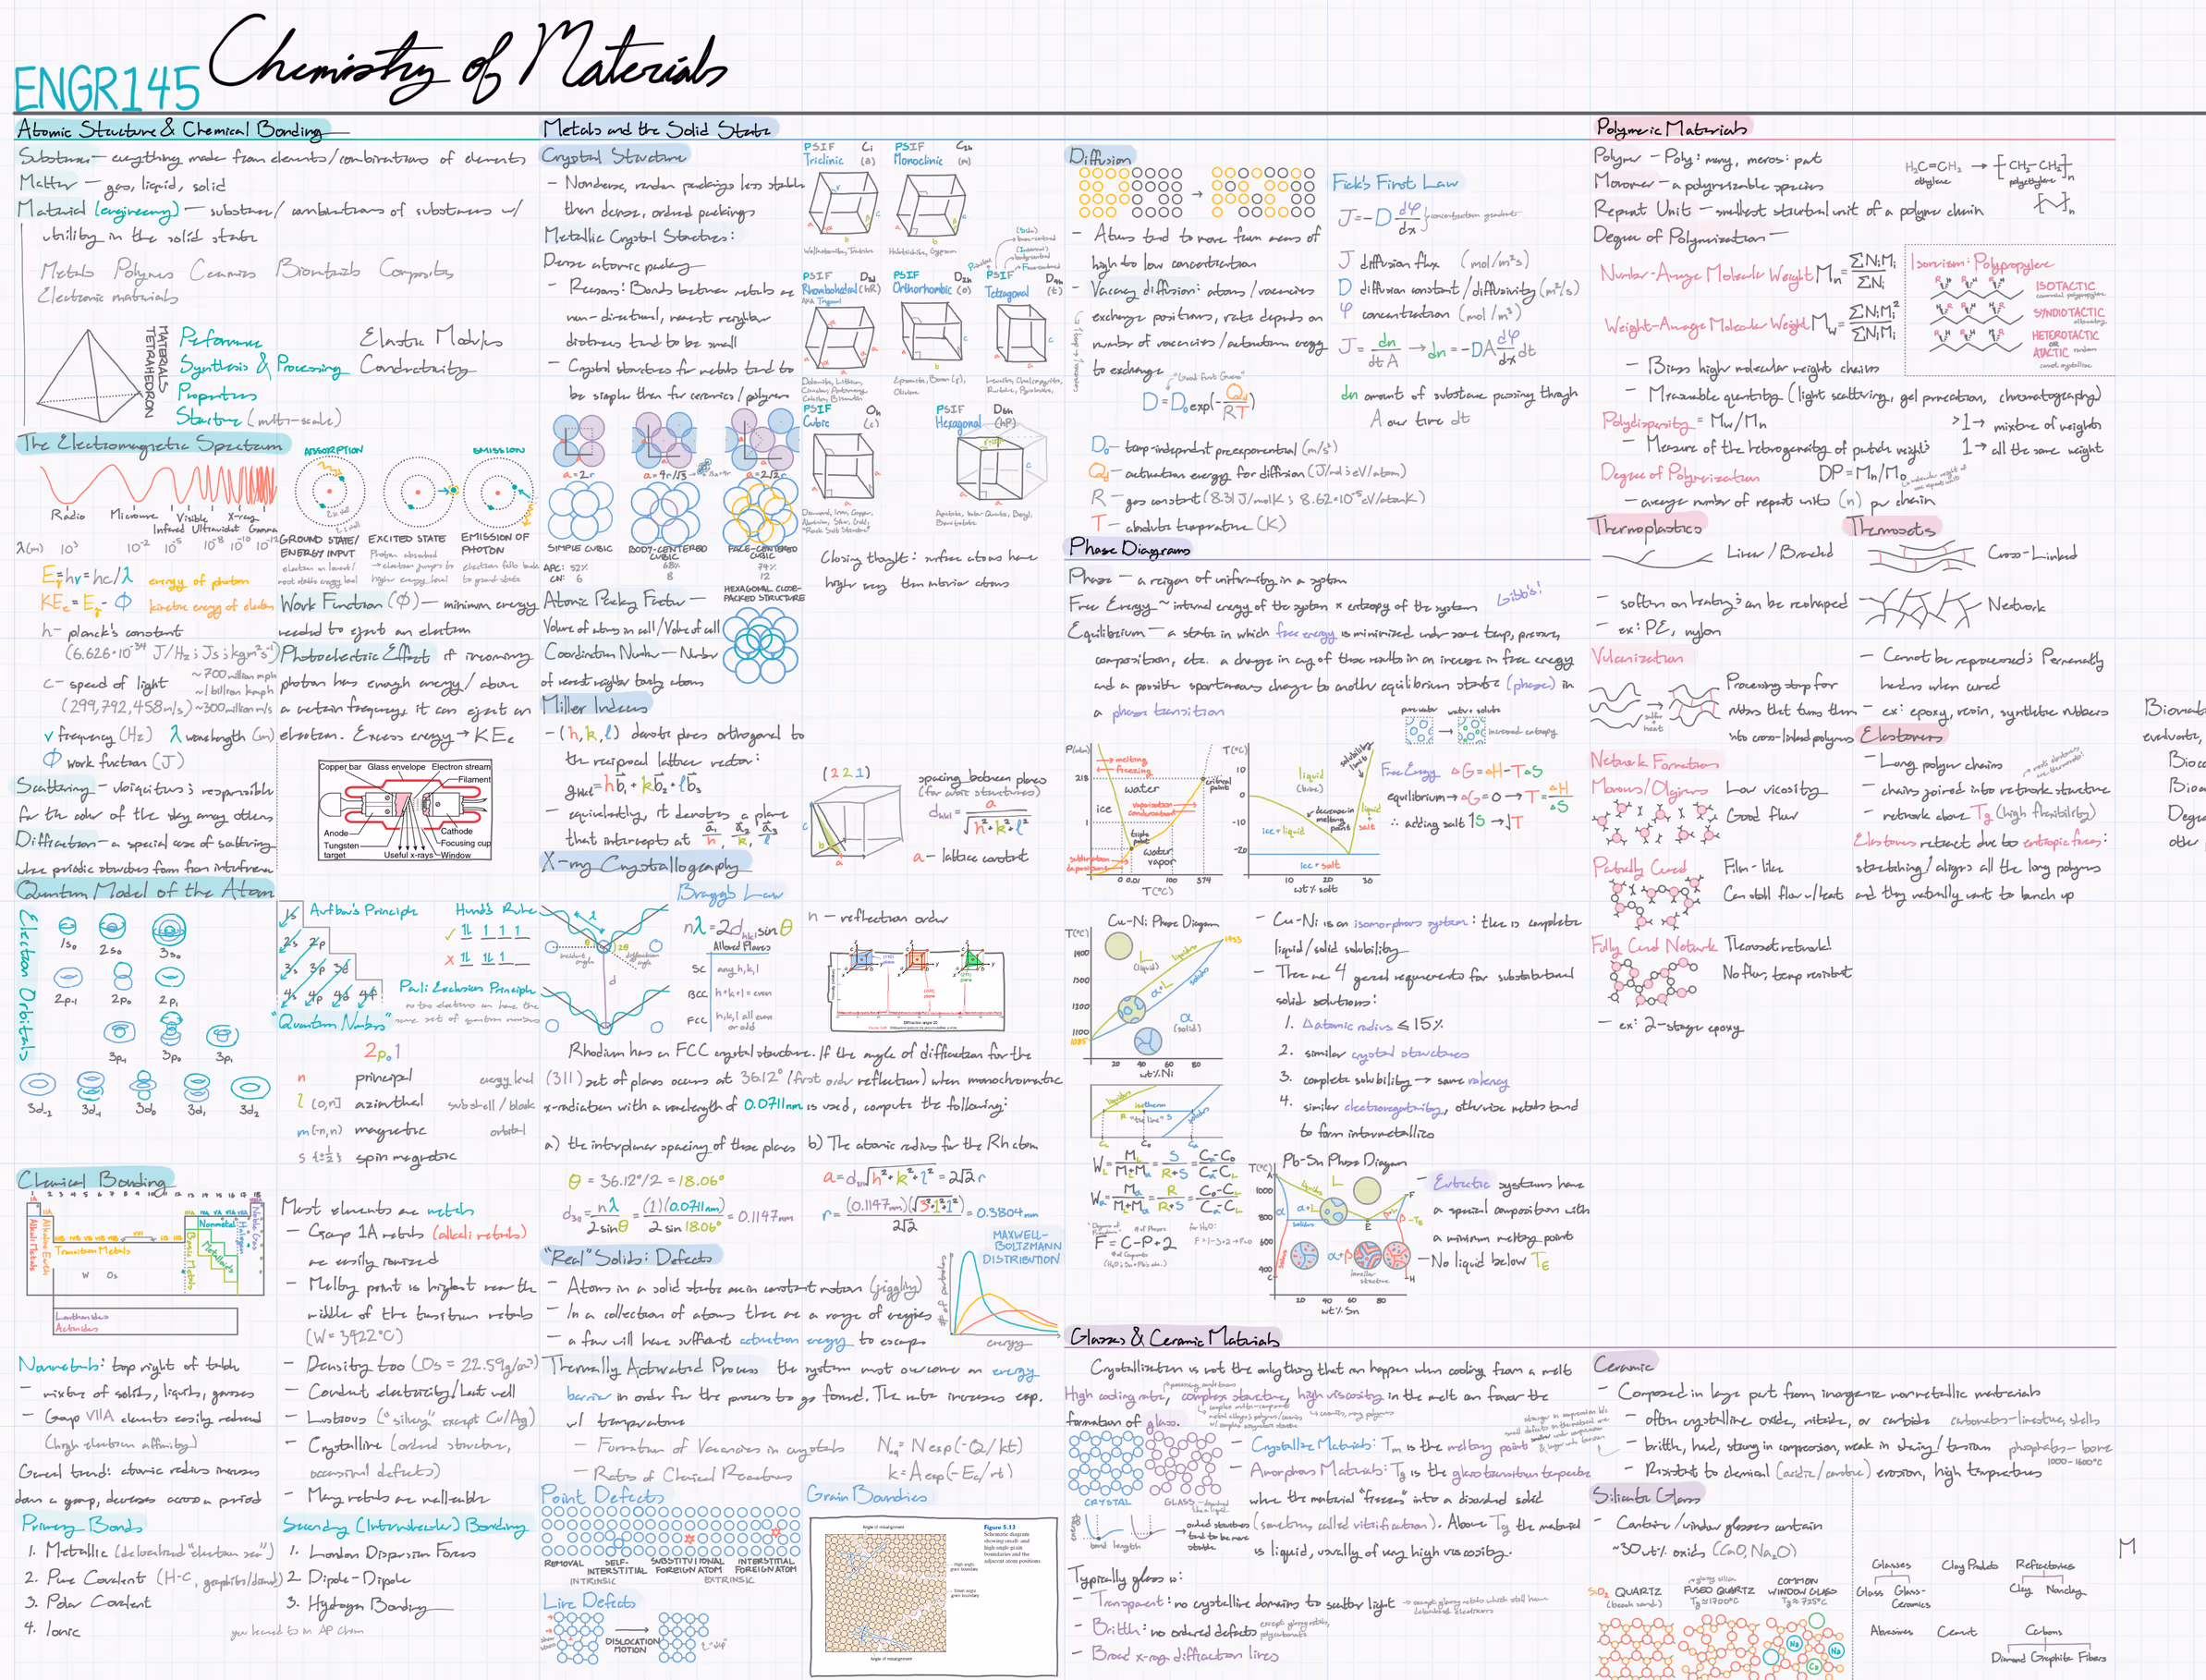 ENGR145 Chemistry of Materials
Atomic Structure & Chemical Bonding
Substance — everything made from elements/combinations of elements
Matter — gas, liquid, solid
Material (engineering) — substance/combinations of substances w/
utility in the solid state
Metals Polymers Ceramics Biomaterials Composites
Electronic materials
MATERIALS TETRAHEDRON
Performance
Synthesis & Processing
Properties
Structure (multi-scale)
Elastic Modulus
Conductivity
The Electromagnetic Spectrum
Radio Microwave Visible X-ray
Infrared Ultraviolet Gamma
λ(m) 10³ 10⁻² 10⁻⁵ 10⁻⁸ 10⁻¹⁰ 10⁻¹²
ABSORPTION
EMISSION
GROUND STATE/ENERGY INPUT
EXCITED STATE
EMISSION OF PHOTON
Photon absorbed
→ electron jumps to
higher energy level
electron falls back
to ground state
E=hν=hc/λ energy of photon
KEₑ=Eₚ-Φ kinetic energy of electron
h— planck's constant
(6.626·10⁻³⁴ J/Hz; Js; kgm²s⁻¹)
c— speed of light ~700 million mph
~1 billion kmph
(299,792,458m/s) ~300 million m/s
ν frequency (Hz) λ wavelength (m)
Φ work function (J)
Scattering — ubiquitous; responsible
for the color of the sky among others
Diffraction — a special case of scattering
where periodic structures form from interference
Work Function (Φ) — minimum energy
needed to eject an electron
Photoelectric Effect if incoming
photon has enough energy/above
a certain frequency, it can eject an
electron. Excess energy → KEₑ
Copper bar Glass envelope Electron stream
Filament
Anode
Tungsten target
Useful x-rays
Window
Cathode
Focusing cup
Quantum Model of the Atom
Electron Orbitals
1s₀ 2s₀ 3s₀
2p₋₁ 2p₀ 2p₁
3p₋₁ 3p₀ 3p₁
3d₋₂ 3d₋₁ 3d₀ 3d₁ 3d₂
Aufbau's Principle
1s
2s 2p
3s 3p 3d
4s 4p 4d 4f
Hund's Rule
Pauli Exclusion Principle
no two electrons can have the
same set of quantum numbers
"Quantum Numbers"
2p₀1
n principal energy level
l [0,n] azimuthal subshell/block
m[-n,n] magnetic orbital
s {±½} spin magnetic
Chemical Bonding
1 2 3 4 5 6 7 8 9 10 11 12 13 14 15 16 17 18
Alkali Metals
Alkaline Earth
Transition Metals
W Os
Basic Metals
Metalloids
Nonmetal
Halogen
Noble Gas
Lanthanides
Actinides
Most elements are metals
— Group 1A metals (alkali metals)
are easily ionized
— Melting point is highest near the
middle of the transition metals
(W = 3422°C)
— Density too (Os = 22.59g/cm³)
— Conduct electricity/heat well
— Lustrous ("silvery" except Cu/Ag)
— Crystalline (ordered structure,
occasional defects)
— Many metals are malleable
Nonmetals: top right of table
— mixture of solids, liquids, gasses
— Group VIIA elements easily reduced
(high electron affinity)
General trend: atomic radius increases
down a group, decreases across a period
Primary Bonds
1. Metallic (delocalized "electron sea")
2. Pure Covalent (H-C, graphite/diamond)
3. Polar Covalent
4. Ionic
Secondary (Intermolecular) Bonding
1. London Dispersion Forces
2. Dipole-Dipole
3. Hydrogen Bonding
you learned this in AP Chem
Metals and the Solid State
Crystal Structure
— Nondense, random packings less stable
than dense, ordered packings
Metallic Crystal Structures:
Dense atomic packing
— Reasons: Bonds between metals are
non-directional, nearest neighbor
distances tend to be small
— Crystal structures for metals tend to
be simpler than for ceramics/polymers
a=2r a=4r/√3 a=2√2r
SIMPLE CUBIC
BODY-CENTERED CUBIC
FACE-CENTERED CUBIC
APC: 52% 68% 74%
CN: 6 8 12
HEXAGONAL CLOSE-PACKED STRUCTURE
Atomic Packing Factor —
Volume of atoms in cell/Volume of cell
Coordination Number — Number
of nearest neighbor touching atoms
Miller Indices
— (h,k,l) denotes planes orthogonal to
the reciprocal lattice vector:
g_hkl=hb₁+kb₂+lb₃
— equivalently, it denotes a plane
that intercepts at a₁/h, a₂/k, a₃/l
(221)
spacing between planes
(for cubic structures)
d_hkl = a/√(h²+k²+l²)
a— lattice constant
PSIF Triclinic Ci (a)
PSIF Monoclinic C2h (m)
Wollastonite, Turquoise
PSIF Rhombohedral D3d (hR)
AKA Trigonal
PSIF Orthorhombic D2h (o)
PSIF Tetragonal D4h (t)
PSIF Cubic Oh (c)
PSIF Hexagonal D6h (hP)
Closing thought: surface atoms have
higher energy than interior atoms
X-ray Crystallography
Bragg's Law
nλ=2d_hkl sinθ
n — reflection order
Allowed Planes
SC any h,k,l
BCC h+k+l=even
FCC h,k,l all even or odd
Rhodium has an FCC crystal structure. If the angle of diffraction for the
(311) set of planes occurs at 36.12° (first order reflection) when monochromatic
x-radiation with a wavelength of 0.0711nm is used, compute the following:
a) the interplanar spacing of these planes
b) The atomic radius for the Rh atom
θ = 36.12°/2 = 18.06°
d₃₁₁ = nλ/2sinθ = (1)(0.0711nm)/2 sin 18.06° = 0.1147nm
a=d√(h²+k²+l²)=2√2r
r = (0.1147nm)(√(3²+1²+1²))/2√2 = 0.3804nm
"Real" Solids: Defects
— Atoms in a solid state are in constant motion (jiggling)
— In a collection of atoms there are a range of energies
— a few will have sufficient activation energy to escape
MAXWELL-BOLTZMANN DISTRIBUTION
# of particles
energy
Thermally Activated Process the system must overcome an energy
barrier in order for the process to go forward. The rate increases exp.
w/ temperature
— Formation of Vacancies in crystals N_eq=Nexp(-Q/kt)
— Rates of Chemical Reactions k=Aexp(-Ea/rt)
Point Defects
REMOVAL SELF-INTERSTITIAL SUBSTITUTIONAL FOREIGN ATOM INTERSTITIAL FOREIGN ATOM
INTRINSIC EXTRINSIC
Line Defects
DISLOCATION MOTION
"slip"
Grain Boundaries
Angle of misalignment
High angle grain boundary
Small-angle grain boundary
Angle of misalignment
Figure 5.13
Schematic diagram showing small- and high-angle grain boundaries and the adjacent atom positions.
Diffusion
— Atoms tend to move from areas of
high to low concentration
— Vacancy diffusion: atoms/vacancies
exchange positions, rate depends on
number of vacancies/activation energy
to exchange
D=D₀exp(-Qd/RT)
D₀— temp-independent preexponential (m²/s)
Qd— activation energy for diffusion (J/mol; eV/atom)
R— gas constant (8.31 J/molK; 8.62·10⁻⁵eV/atomK)
T— absolute temperature (K)
Fick's First Law
J=-D dφ/dx } concentration gradient
J diffusion flux (mol/m²s)
D diffusion constant/diffusivity (m²/s)
φ concentration (mol/m³)
J = dn/dtA → dn=-DA dφ/dx dt
dn amount of substance passing through
A over time dt
Phase Diagrams
Phase — a reigon of uniformity in a system
Free Energy ~ internal energy of the system × entropy of the system Gibb's!
Equilibrium — a state in which free energy is minimized under some temp, pressure,
composition, etc. a change in any of these results in an increase in free energy
and a possible spontaneous change to another equilibrium state (phase) in
a phase transition
P(atm)
218
1
melting
freezing
water
ice
vaporization
condensation
critical point
triple point
water vapor
0 0.01 100 374
T(°C)
T(°C)
10
0
-10
-20
liquid (brine)
solubility limit
decrease in melting point
ice+liquid
liquid + salt
ice+salt
10 20 30
wt% salt
pure water
water + solute
increased entropy
Free Energy ΔG=ΔH-TΔS
equilibrium → ΔG=0 → T=ΔH/ΔS
∴ adding salt ↑S → ↓T
Cu-Ni Phase Diagram
T(°C)
L (liquid)
liquidus
α+L
solidus
α (solid)
1453
1085
20 40 60 80
wt% Ni
— Cu-Ni is an isomorphous system: there is complete
liquid/solid solubility
— There are 4 general requirements for substitutional
solid solutions:
1. Δatomic radius ≤ 15%
2. similar crystal structures
3. complete solubility → same valency
4. similar electronegativity, otherwise metals tend
to form intermetallics
isotherm
R "tie line" S
C_L C₀ C_α
W_L = M_L/(M_L+M_α) = S/(R+S) = (C_α-C₀)/(C_α-C_L)
W_α = M_α/(M_L+M_α) = R/(R+S) = (C₀-C_L)/(C_α-C_L)
F=C-P+2
Pb-Sn Phase Diagram
T(°C)
1000
800
600
400
α α+L β+L β
α+β
lamellar structure
20 40 60 80
wt% Sn
— Eutectic systems have
a special composition with
a minimum melting point
— No liquid below T_E
Glasses & Ceramic Materials
Crystallization is not the only thing that can happen when cooling from a melt
High cooling rates, complex structure, high viscosity in the melt can favor the
formation of glass.
CRYSTAL GLASS
— Crystalline Materials: Tm is the melting point
— Amorphous Materials: Tg is the glass transition temperature
where the material "freezes" into a disordered solid
(sometimes called vitrification). Above Tg the material
is liquid, usually of very high viscosity.
energy
bond length
→ ordered structures tend to be more stable
Typically glass is:
— Transparent: no crystalline domains to scatter light
— Brittle: no ordered defects except glassy metals, polycarbonate
— Broad x-ray diffraction lines
Polymeric Materials
Polymer — Poly: many, meros: part
Monomer — a polymerizable species
Repeat Unit — smallest structural unit of a polymer chain
Degree of Polymerization —
H₂C=CH₂ → [CH₂-CH₂]n
ethylene polyethylene
Number-Average Molecular Weight Mn = ΣNiMi/ΣNi
Weight-Average Molecular Weight Mw = ΣNiMi²/ΣNiMi
Isomerism: Polypropylene
ISOTACTIC
commercial polypropylene
SYNDIOTACTIC
alternating
HETEROTACTIC
OR
ATACTIC random
cannot crystallize
— Biases high molecular weight chains
— Measurable quantity (light scattering, gel permeation, chromatography)
Polydispersity = Mw/Mn >1 → mixture of weights
— Measure of the heterogeneity of particle weights 1 → all the same weight
Degree of Polymerization DP=Mn/M₀
— average number of repeat units (n) per chain
Thermoplastics
Linear/Branched
— soften on heating; can be reshaped
— ex: PE, nylon
Thermosets
Cross-Linked
Network
— Cannot be reprocessed; Permanently
harden when cured
— ex: epoxy, resin, synthetic rubbers
Vulcanization
sulfur + heat
Processing step for
rubbers that turns them
into cross-linked polymers
Elastomers
— Long polymer chains
— chains joined into network structure
— network above Tg (high flexibility)
Elastomers retract due to entropic forces:
stretching/aligns all the long polymers
and they naturally want to bunch up
Network Formation
Monomers/Oligomers
Low viscosity
Good flow
Partially Cured
Film-like
Can still flow w/heat
Fully Cured Network
Thermoset network!
No flow, temp resistant
— ex: 2-stage epoxy
Ceramic
— Composed in large part from inorganic nonmetallic materials
— often crystalline oxide, nitride, or carbide carbonates-limestone, shells
— brittle, hard, strong in compression, weak in shearing/tension phosphates-bone
— Resistant to chemical (acidic/caustic) erosion, high temperatures
1000-1600°C
Silicate Glass
— Container/window glasses contain
~30wt% oxides (CaO, Na₂O)
SiO₂ QUARTZ (beach sand)
FUSED QUARTZ Tg≈1700°C
COMMON WINDOW GLASS Tg≈725°C
Na
Na
Ca
Ca
Glasses Clay Products Refractories
Glass Glass-Ceramics Clay Nonclay
Abrasives Cement Carbons
Diamond Graphite Fibers
evaluate,
other
M